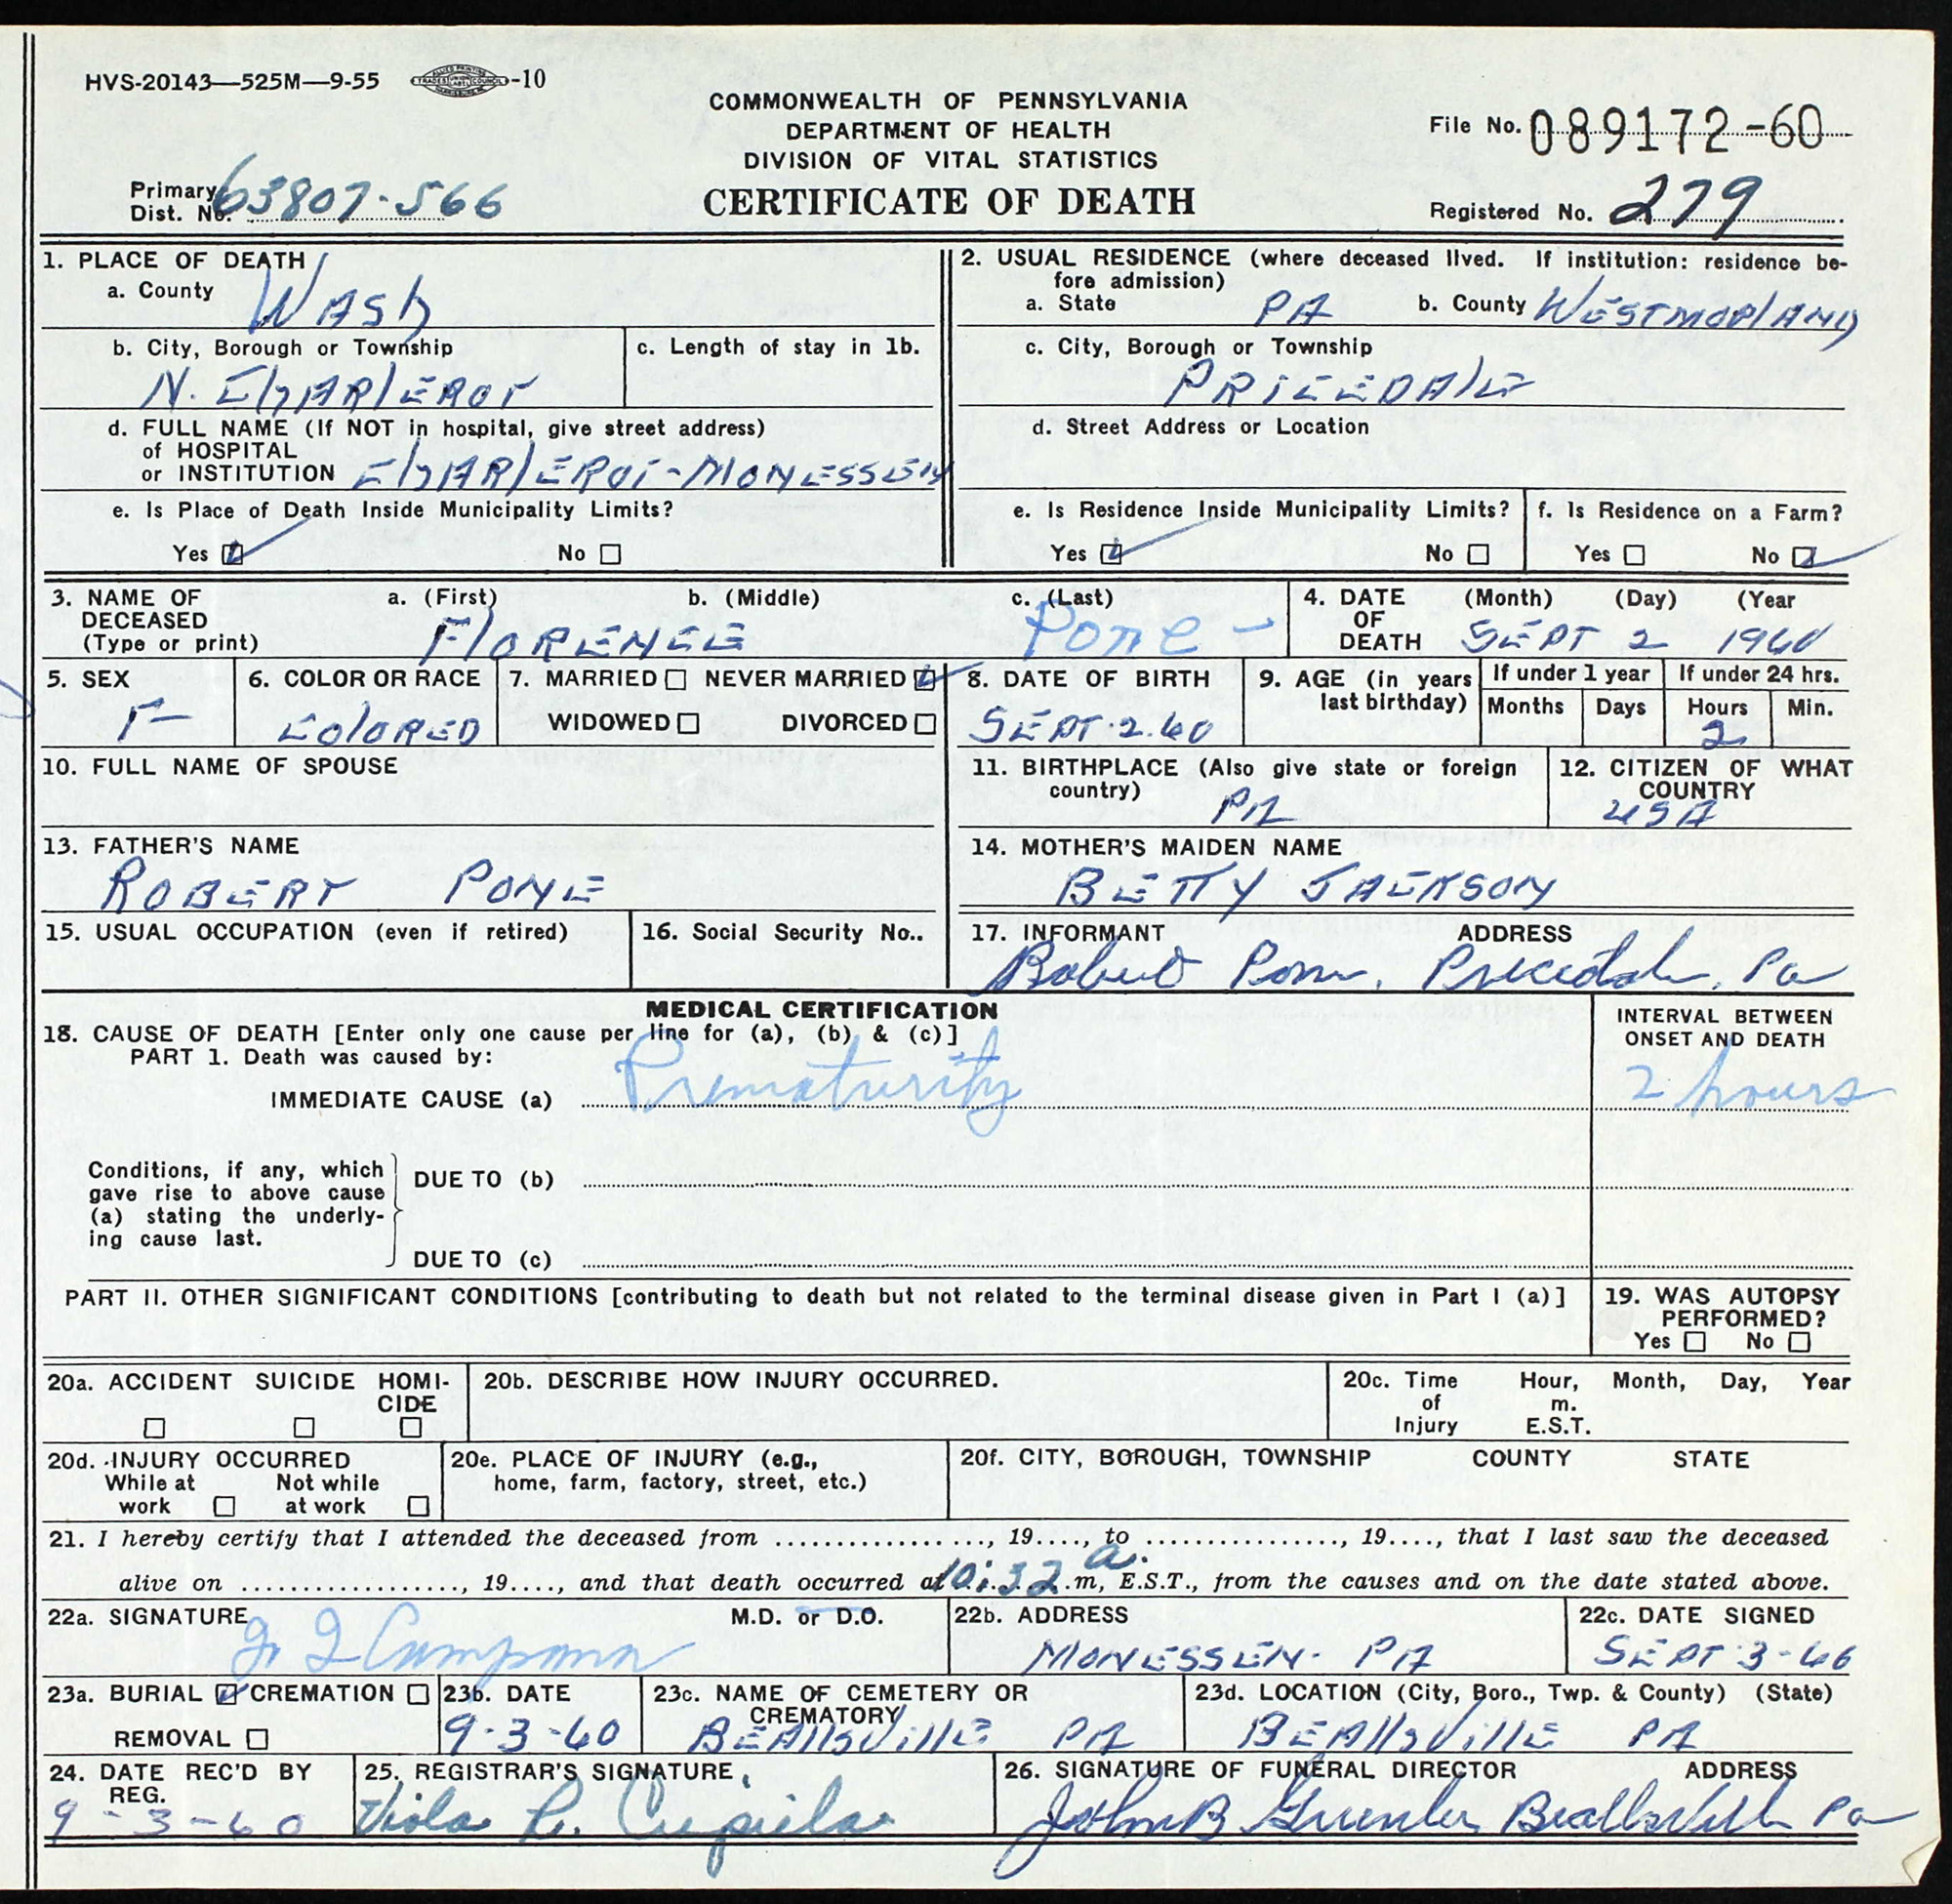 HVS-20143—525M—9-55 -10
COMMONWEALTH OF PENNSYLVANIA
DEPARTMENT OF HEALTH
DIVISION OF VITAL STATISTICS
CERTIFICATE OF DEATH
File No. 089172-60
Primary
Dist. No. 63807-566
Registered No. 279
1. PLACE OF DEATH
a. County WASH
b. City, Borough or Township
N. CHARLEROI
c. Length of stay in 1b.
d. FULL NAME (If NOT in hospital, give street address)
of HOSPITAL
or INSTITUTION CHARLEROI-MONESSEN
e. Is Place of Death Inside Municipality Limits?
Yes No
2. USUAL RESIDENCE (where deceased lived. If institution: residence be-
fore admission)
a. State PA b. County WESTMORLAND
c. City, Borough or Township
PRICEDALE
d. Street Address or Location
e. Is Residence Inside Municipality Limits?
Yes No
f. Is Residence on a Farm?
Yes No
3. NAME OF
DECEASED
(Type or print)
a. (First) b. (Middle) c. (Last)
FLORENCE Pone -
4. DATE
OF
DEATH
(Month) (Day) (Year
SEPT 2 1960
5. SEX
F
6. COLOR OR RACE
COLORED
7. MARRIED NEVER MARRIED
WIDOWED DIVORCED
8. DATE OF BIRTH
SEPT.2.60
9. AGE (in years
last birthday)
If under 1 year
Months Days
If under 24 hrs.
Hours Min.
2
10. FULL NAME OF SPOUSE
11. BIRTHPLACE (Also give state or foreign
country)
PA
12. CITIZEN OF WHAT
COUNTRY
USA
13. FATHER'S NAME
ROBERT PONE
14. MOTHER'S MAIDEN NAME
BETTY JACKSON
15. USUAL OCCUPATION (even if retired)
16. Social Security No..
17. INFORMANT ADDRESS
Robert Pone, Pricedale, Pa
MEDICAL CERTIFICATION
18. CAUSE OF DEATH [Enter only one cause per line for (a), (b) & (c)]
PART 1. Death was caused by:
IMMEDIATE CAUSE (a) Prematurity
INTERVAL BETWEEN
ONSET AND DEATH
2 hours
Conditions, if any, which
gave rise to above cause
(a) stating the underly-
ing cause last.
DUE TO (b)
DUE TO (c)
PART II. OTHER SIGNIFICANT CONDITIONS [contributing to death but not related to the terminal disease given in Part I (a)]
19. WAS AUTOPSY
PERFORMED?
Yes No
20a. ACCIDENT SUICIDE HOMI-
CIDE
20b. DESCRIBE HOW INJURY OCCURRED.
20c. Time
of
Injury
Hour, Month, Day, Year
m.
E.S.T.
20d. INJURY OCCURRED
While at
work
Not while
at work
20e. PLACE OF INJURY (e.g.,
home, farm, factory, street, etc.)
20f. CITY, BOROUGH, TOWNSHIP COUNTY STATE
21. I hereby certify that I attended the deceased from ................, 19...., to ................, 19...., that I last saw the deceased
alive on ................, 19...., and that death occurred at 10:32 a.m, E.S.T., from the causes and on the date stated above.
22a. SIGNATURE M.D. or D.O.
Campana
22b. ADDRESS
MONESSEN- PA
22c. DATE SIGNED
SEPT 3-60
23a. BURIAL CREMATION
REMOVAL
23b. DATE
9-3-60
23c. NAME OF CEMETERY OR
CREMATORY
BEALLSVILLE PA
23d. LOCATION (City, Boro., Twp. & County) (State)
BEALLSVILLE PA
24. DATE REC'D BY
REG.
9-3-60
25. REGISTRAR'S SIGNATURE
Viola
26. SIGNATURE OF FUNERAL DIRECTOR ADDRESS
John B Beallsville Pa